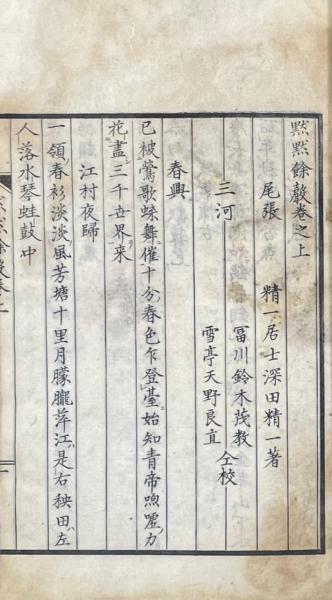 黙黙餘聲卷之上
尾張 精一居士深田精一著
三河 冨川鈴木茂教
雪亭天野良直 仝校
春興
已被鶯歌蝶舞催十分春色乍登臺始知青帝喣噓力
花盡三千世界來
江村夜歸
一領春衫淡淡風芳塘十里月朦朧萍江是右秧田左
人落水琴蛙鼓中